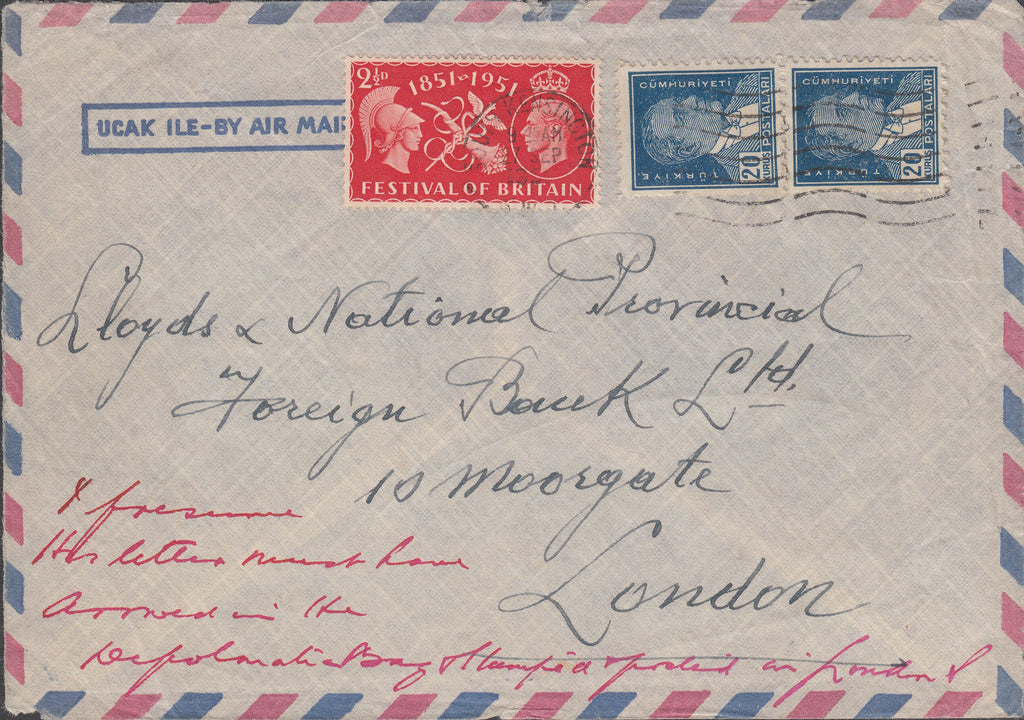 UCAK ILE-BY AIR MAI
2½D
1851-1951
FESTIVAL OF BRITAIN
KENSINGTON
SEP
CÜMHURİYETİ
20
KURUŞ
POSTALARI
TÜRKİYE
CÜMHURİYETİ
20
KURUŞ
POSTALARI
TÜRKİYE
Lloyds & National Provincial
Foreign Bank Ltd.
10 Moorgate
London
I presume
this letter must have
arrived in the
Depolmatic Bag & stamped & posted in London